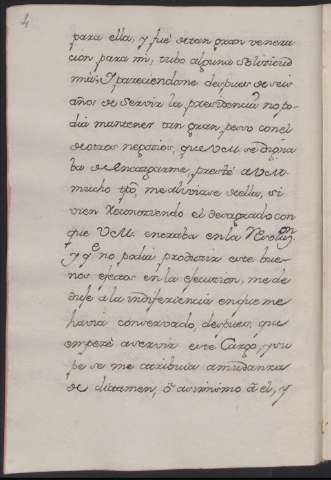 4
para ella, y fué de tan gran venera
cion para mi, tubo alguna solicitud
mia: Y pareciendome despues de seis
años de servir la presidencia no po-
dia mantener tan gran pesso con el
de otros negocios, que V.M. se digna
ba de encargarme, presté a V.M.
mucho tpō, me aliviase de ella, si
vien reconociendo el desagrado con
que V.M. entraba en la Resoluz.on
y q.e no podia producir este bue-
nos efectos en la ejecucion, me de
duje a la indiferiencia en que me
havia conservado, despues, que
empezé a servir este Cargo, y su
pe se me atribuia a mudanza
de dictamen, ō assimismo ā el, y